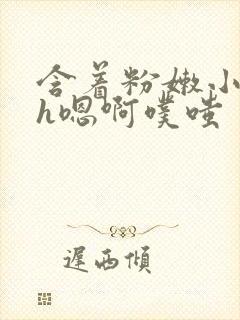 含着粉嫩小
h嗯啊噗嗤
遲西傾